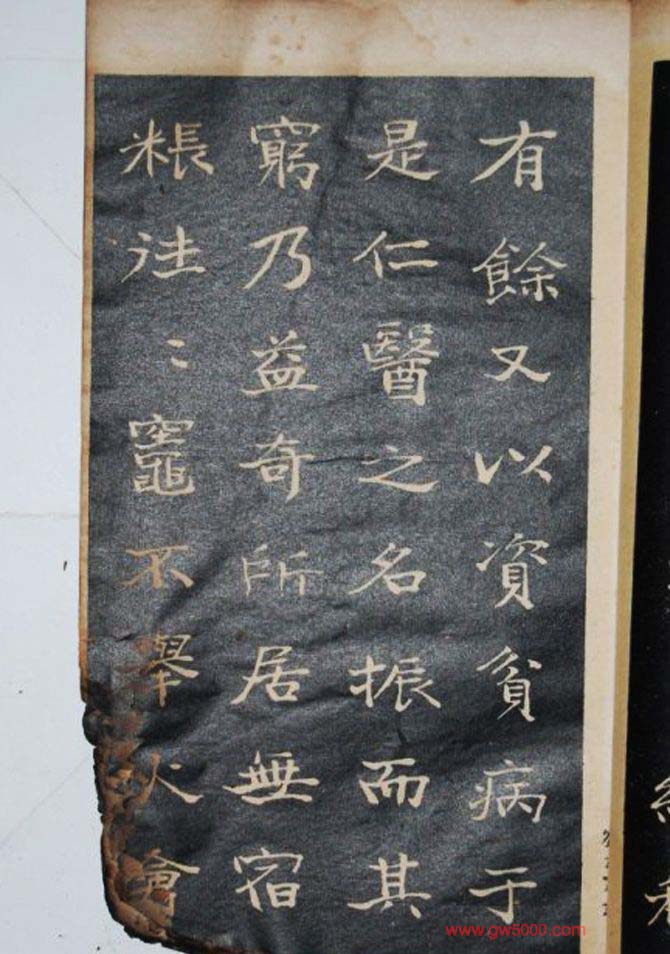 有餘又以資貧病于
是仁醫之名振而其
窮乃益奇所居無宿
粻往〻竈不舉火會
www.gw5000.com